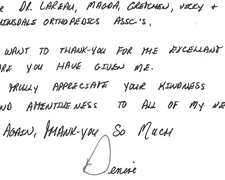 DR. LAREAU, MAGDA, GRETCHEN, VICKY +
HINSDALE ORTHOPEDICS ASSC'S,
WANT TO THANK-YOU FOR THE EXCELLANT
ARE YOU HAVE GIVEN ME.
TRULY APPRECIATE YOUR KINDNESS
ND ATTENTIVENESS TO ALL OF MY NE
AGAIN, THANK-YOU SO MUCH
Denise